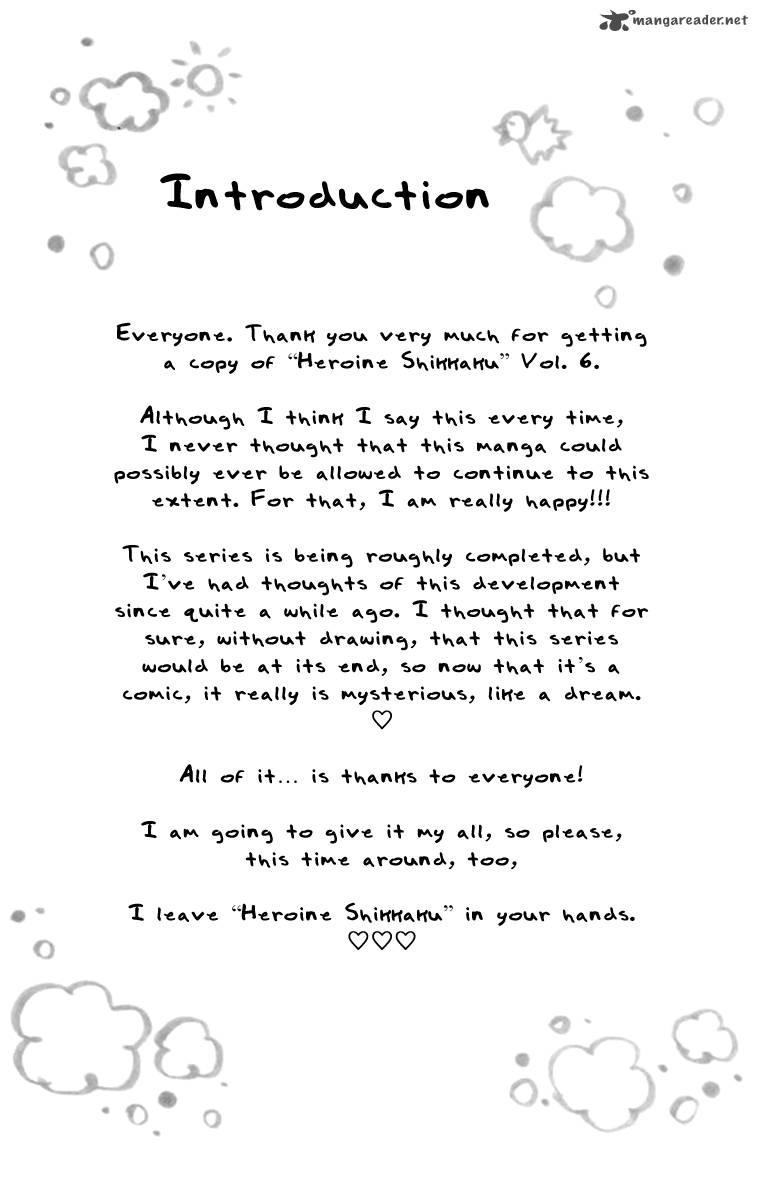 mangareader.net
Introduction
Everyone. Thank you very much for getting
a copy of “Heroine Shikkaku” Vol. 6.
Although I think I say this every time,
I never thought that this manga could
possibly ever be allowed to continue to this
extent. For that, I am really happy!!!
This series is being roughly completed, but
I’ve had thoughts of this development
since quite a while ago. I thought that for
sure, without drawing, that this series
would be at its end, so now that it’s a
comic, it really is mysterious, like a dream.
♡
All of it... is thanks to everyone!
I am going to give it my all, so please,
this time around, too,
I leave “Heroine Shikkaku” in your hands.
♡♡♡